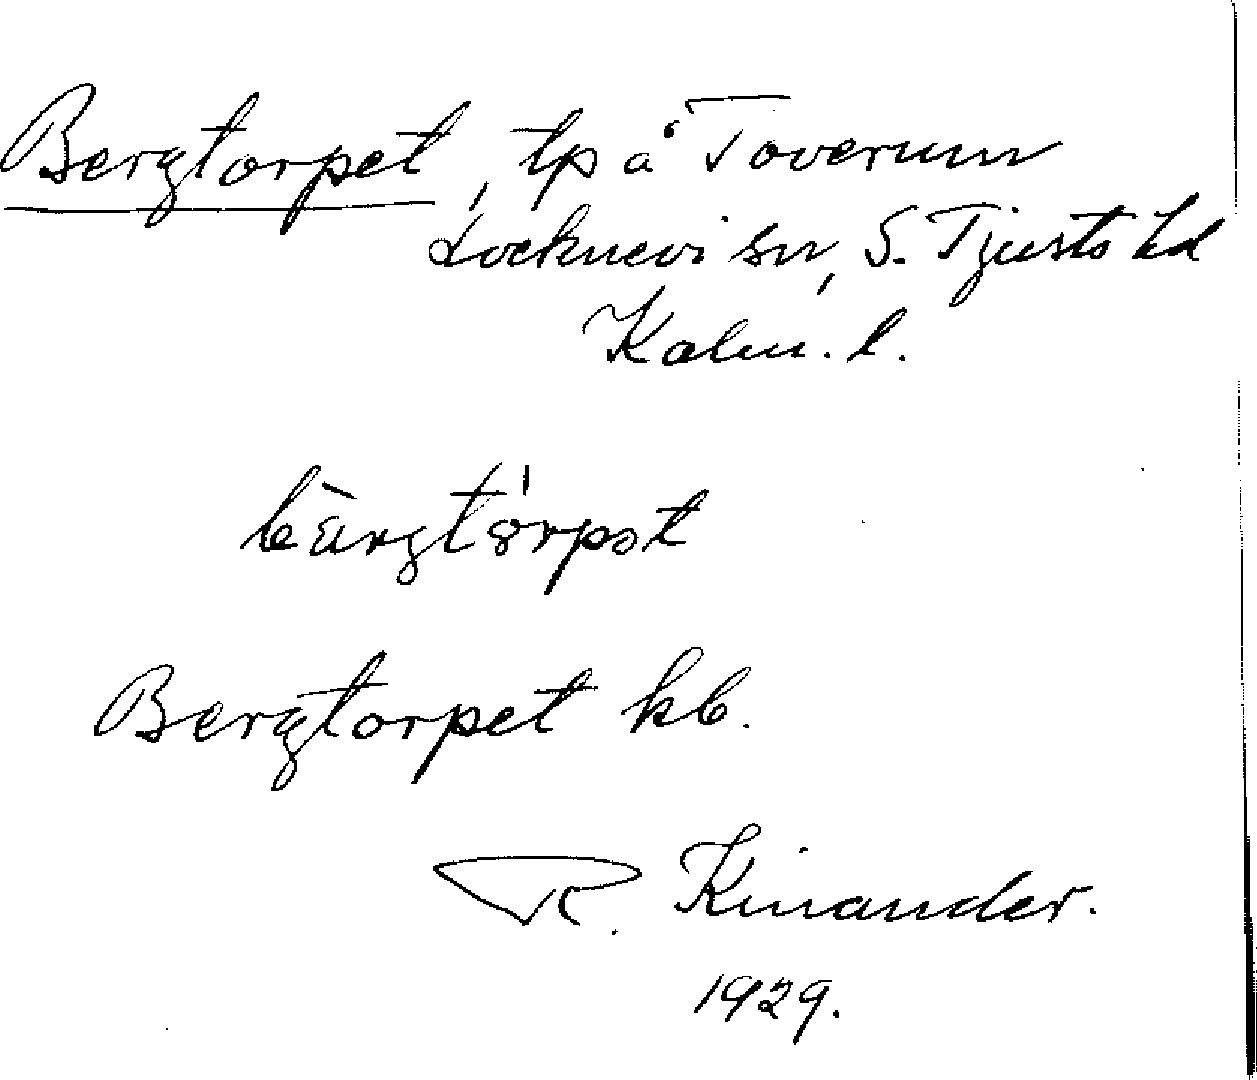 Bergtorpet, tp å Toverum
Locknevi sn, S. Tjusts hd
Kalm. l.
bärgtorpət
Bergtorpet kb.
R. Kinander.
1929.